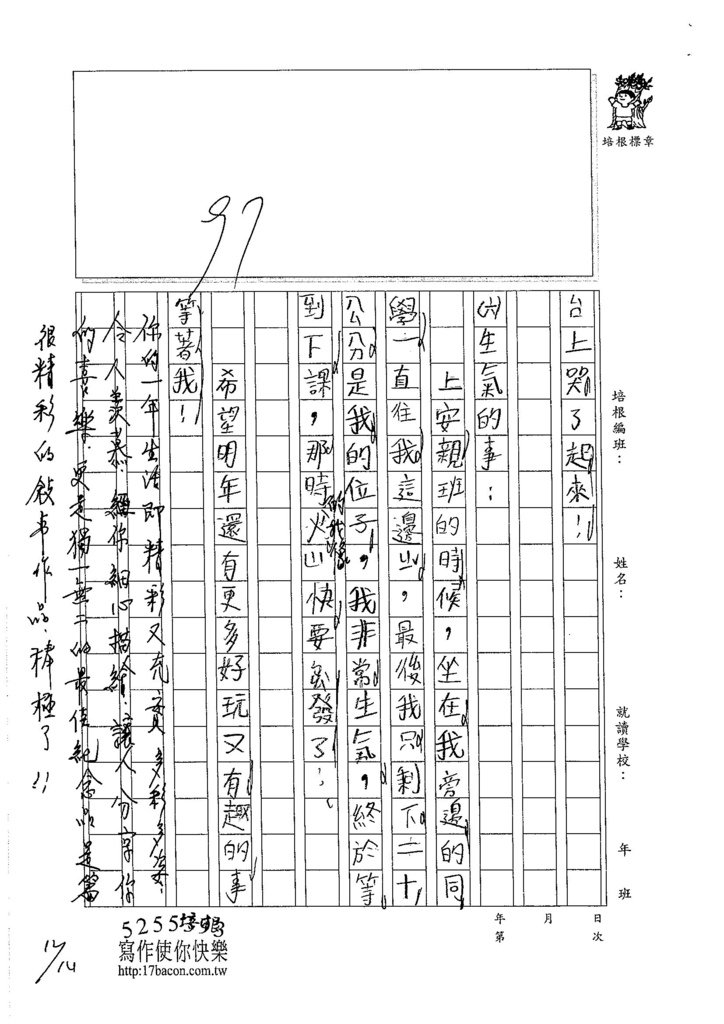 培根標章
培根編班：
姓名：
就讀學校：
年 班
97
台上哭了起來！
(六)生氣的事：
上安親班的時候，坐在我旁邊的同
學一直往我這邊，最後我只剩下二十
公分是我的位子，我非常生氣，終於等
到下課，那時的我像火山快要爆發了！
希望明年還有更多好玩又有趣的事
等著我！
你的一年生活即精彩又充實 多彩多姿，
令人羨慕，經你細心描繪，讓人分享你
的喜樂，更是獨一無二的最佳紀念品，是篇
很精彩的敘事作品，棒極了！！
年 月 日
第 次
5255培根
寫作使你快樂
http:17bacon.com.tw
12/14